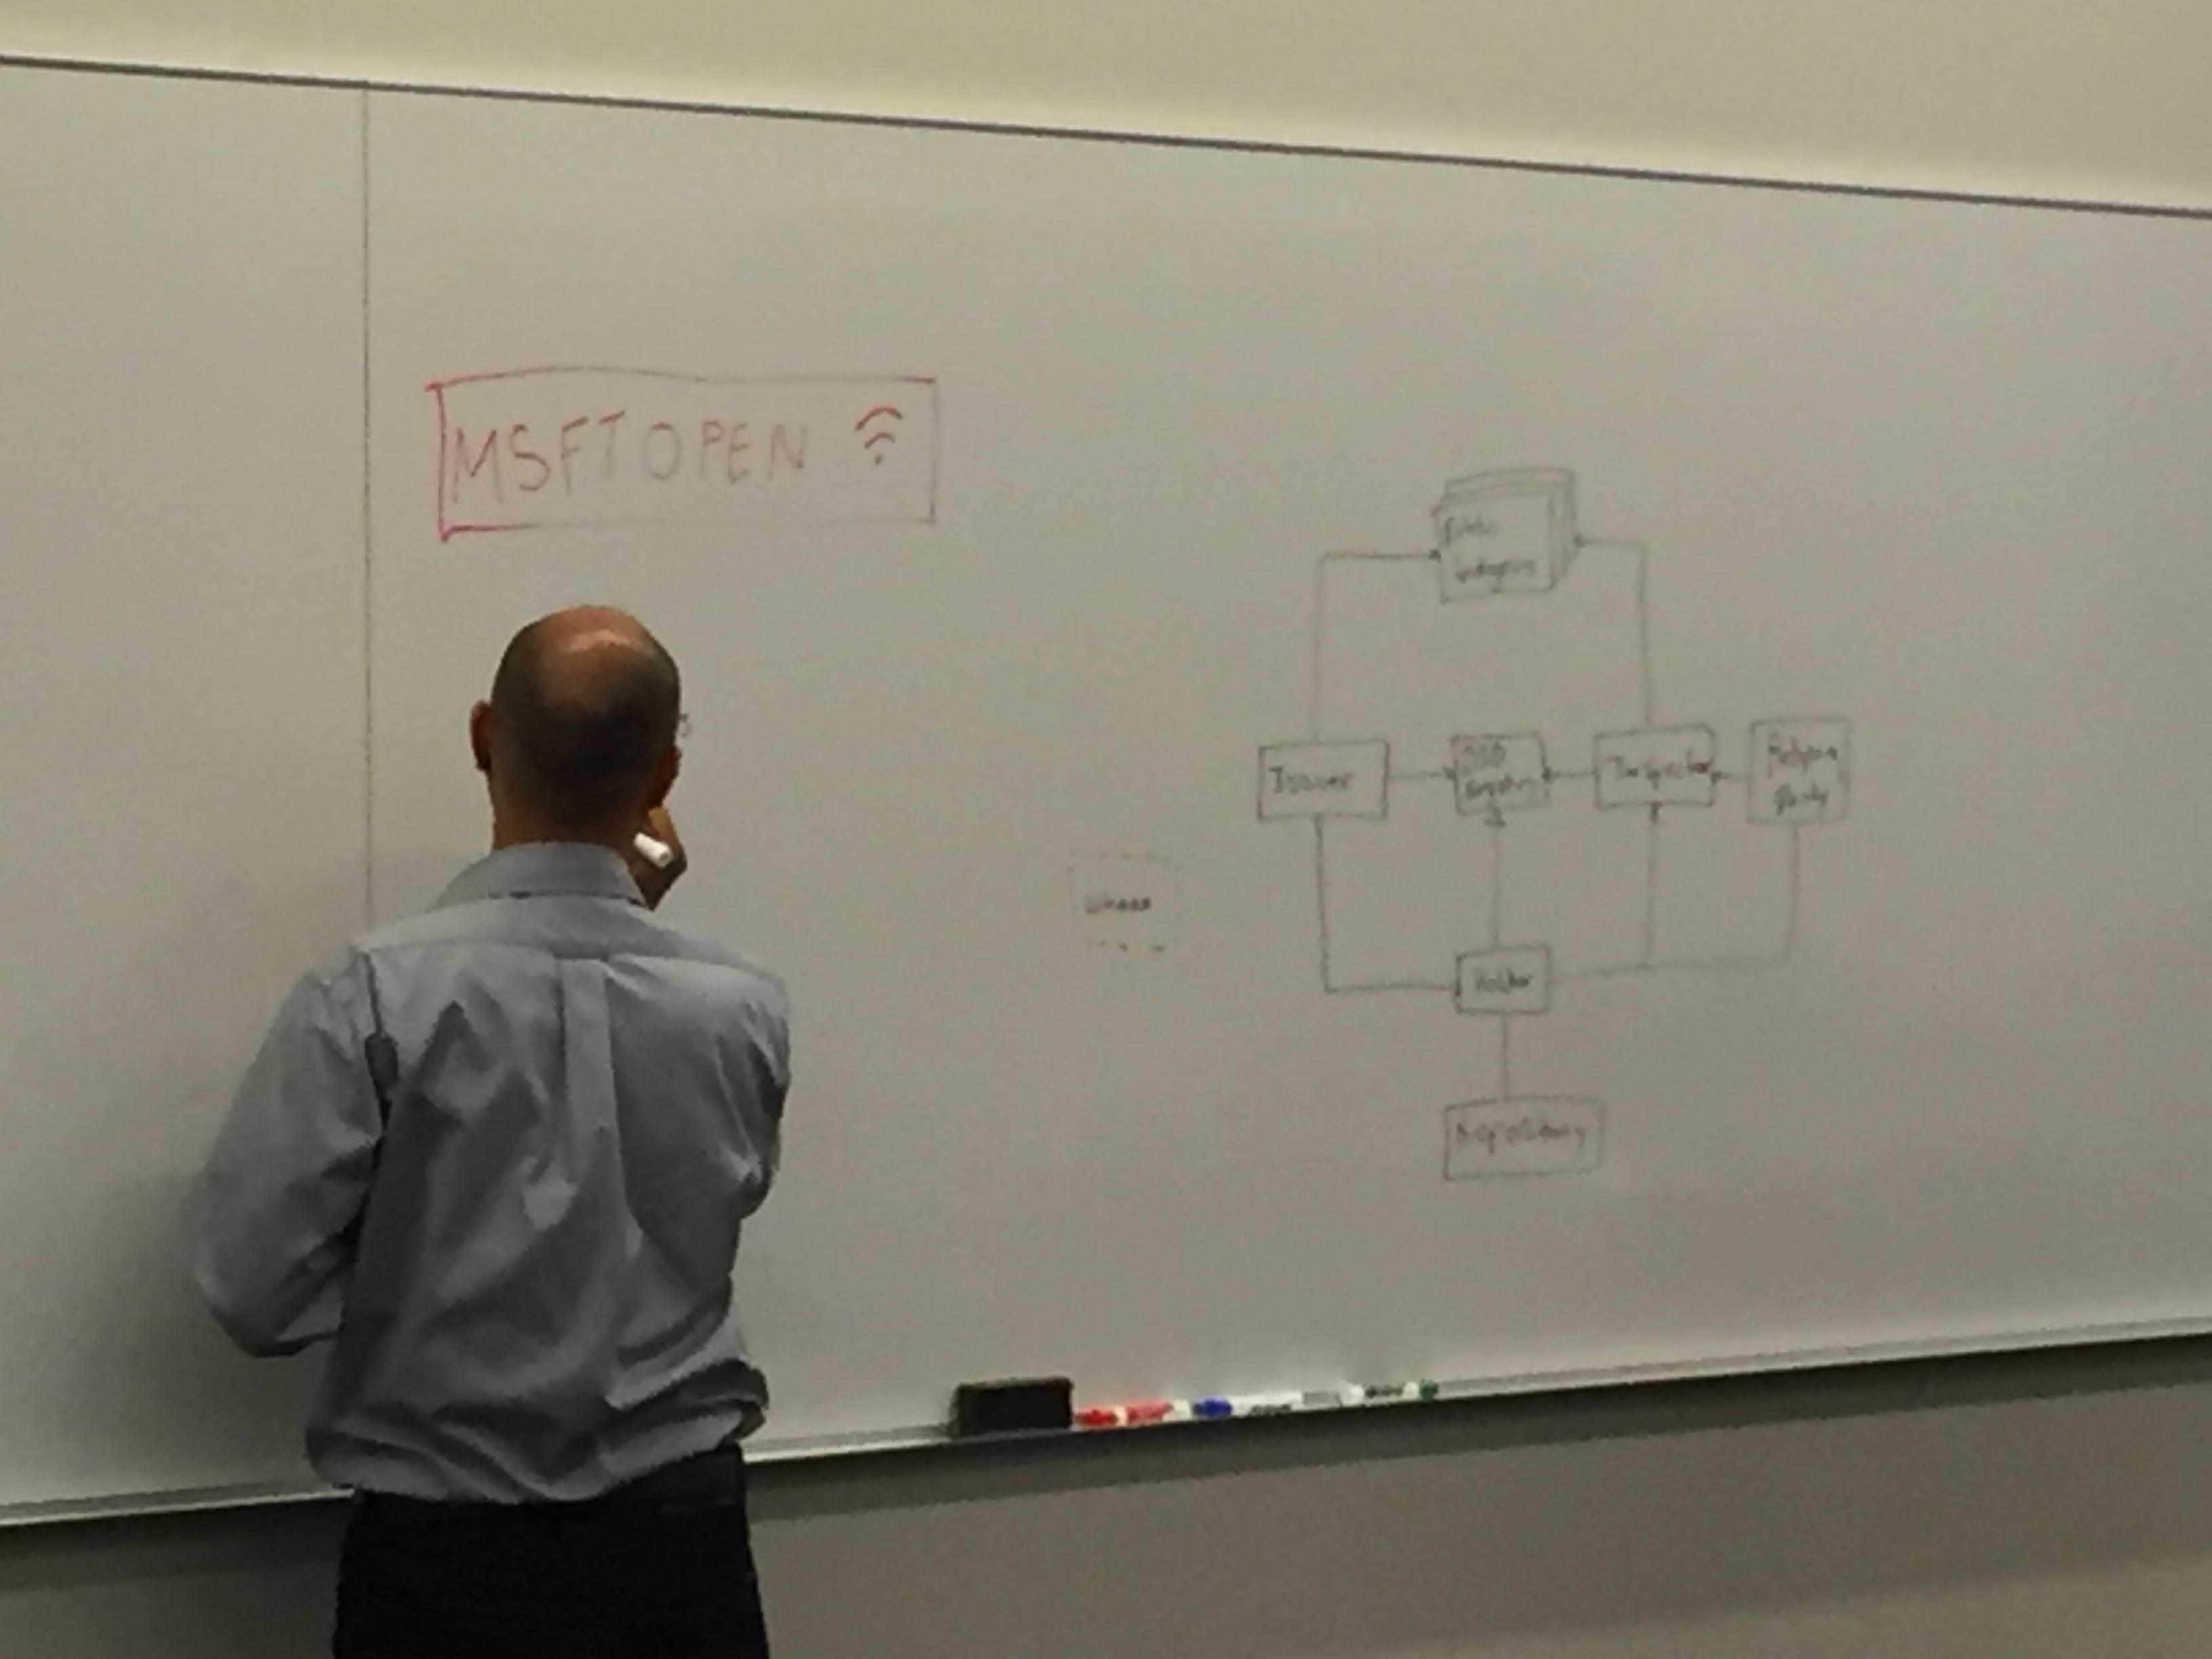 MSFTOPEN
Public
Issuer
DID
Registry
Inspector
Relying
Party
Holder
Repository